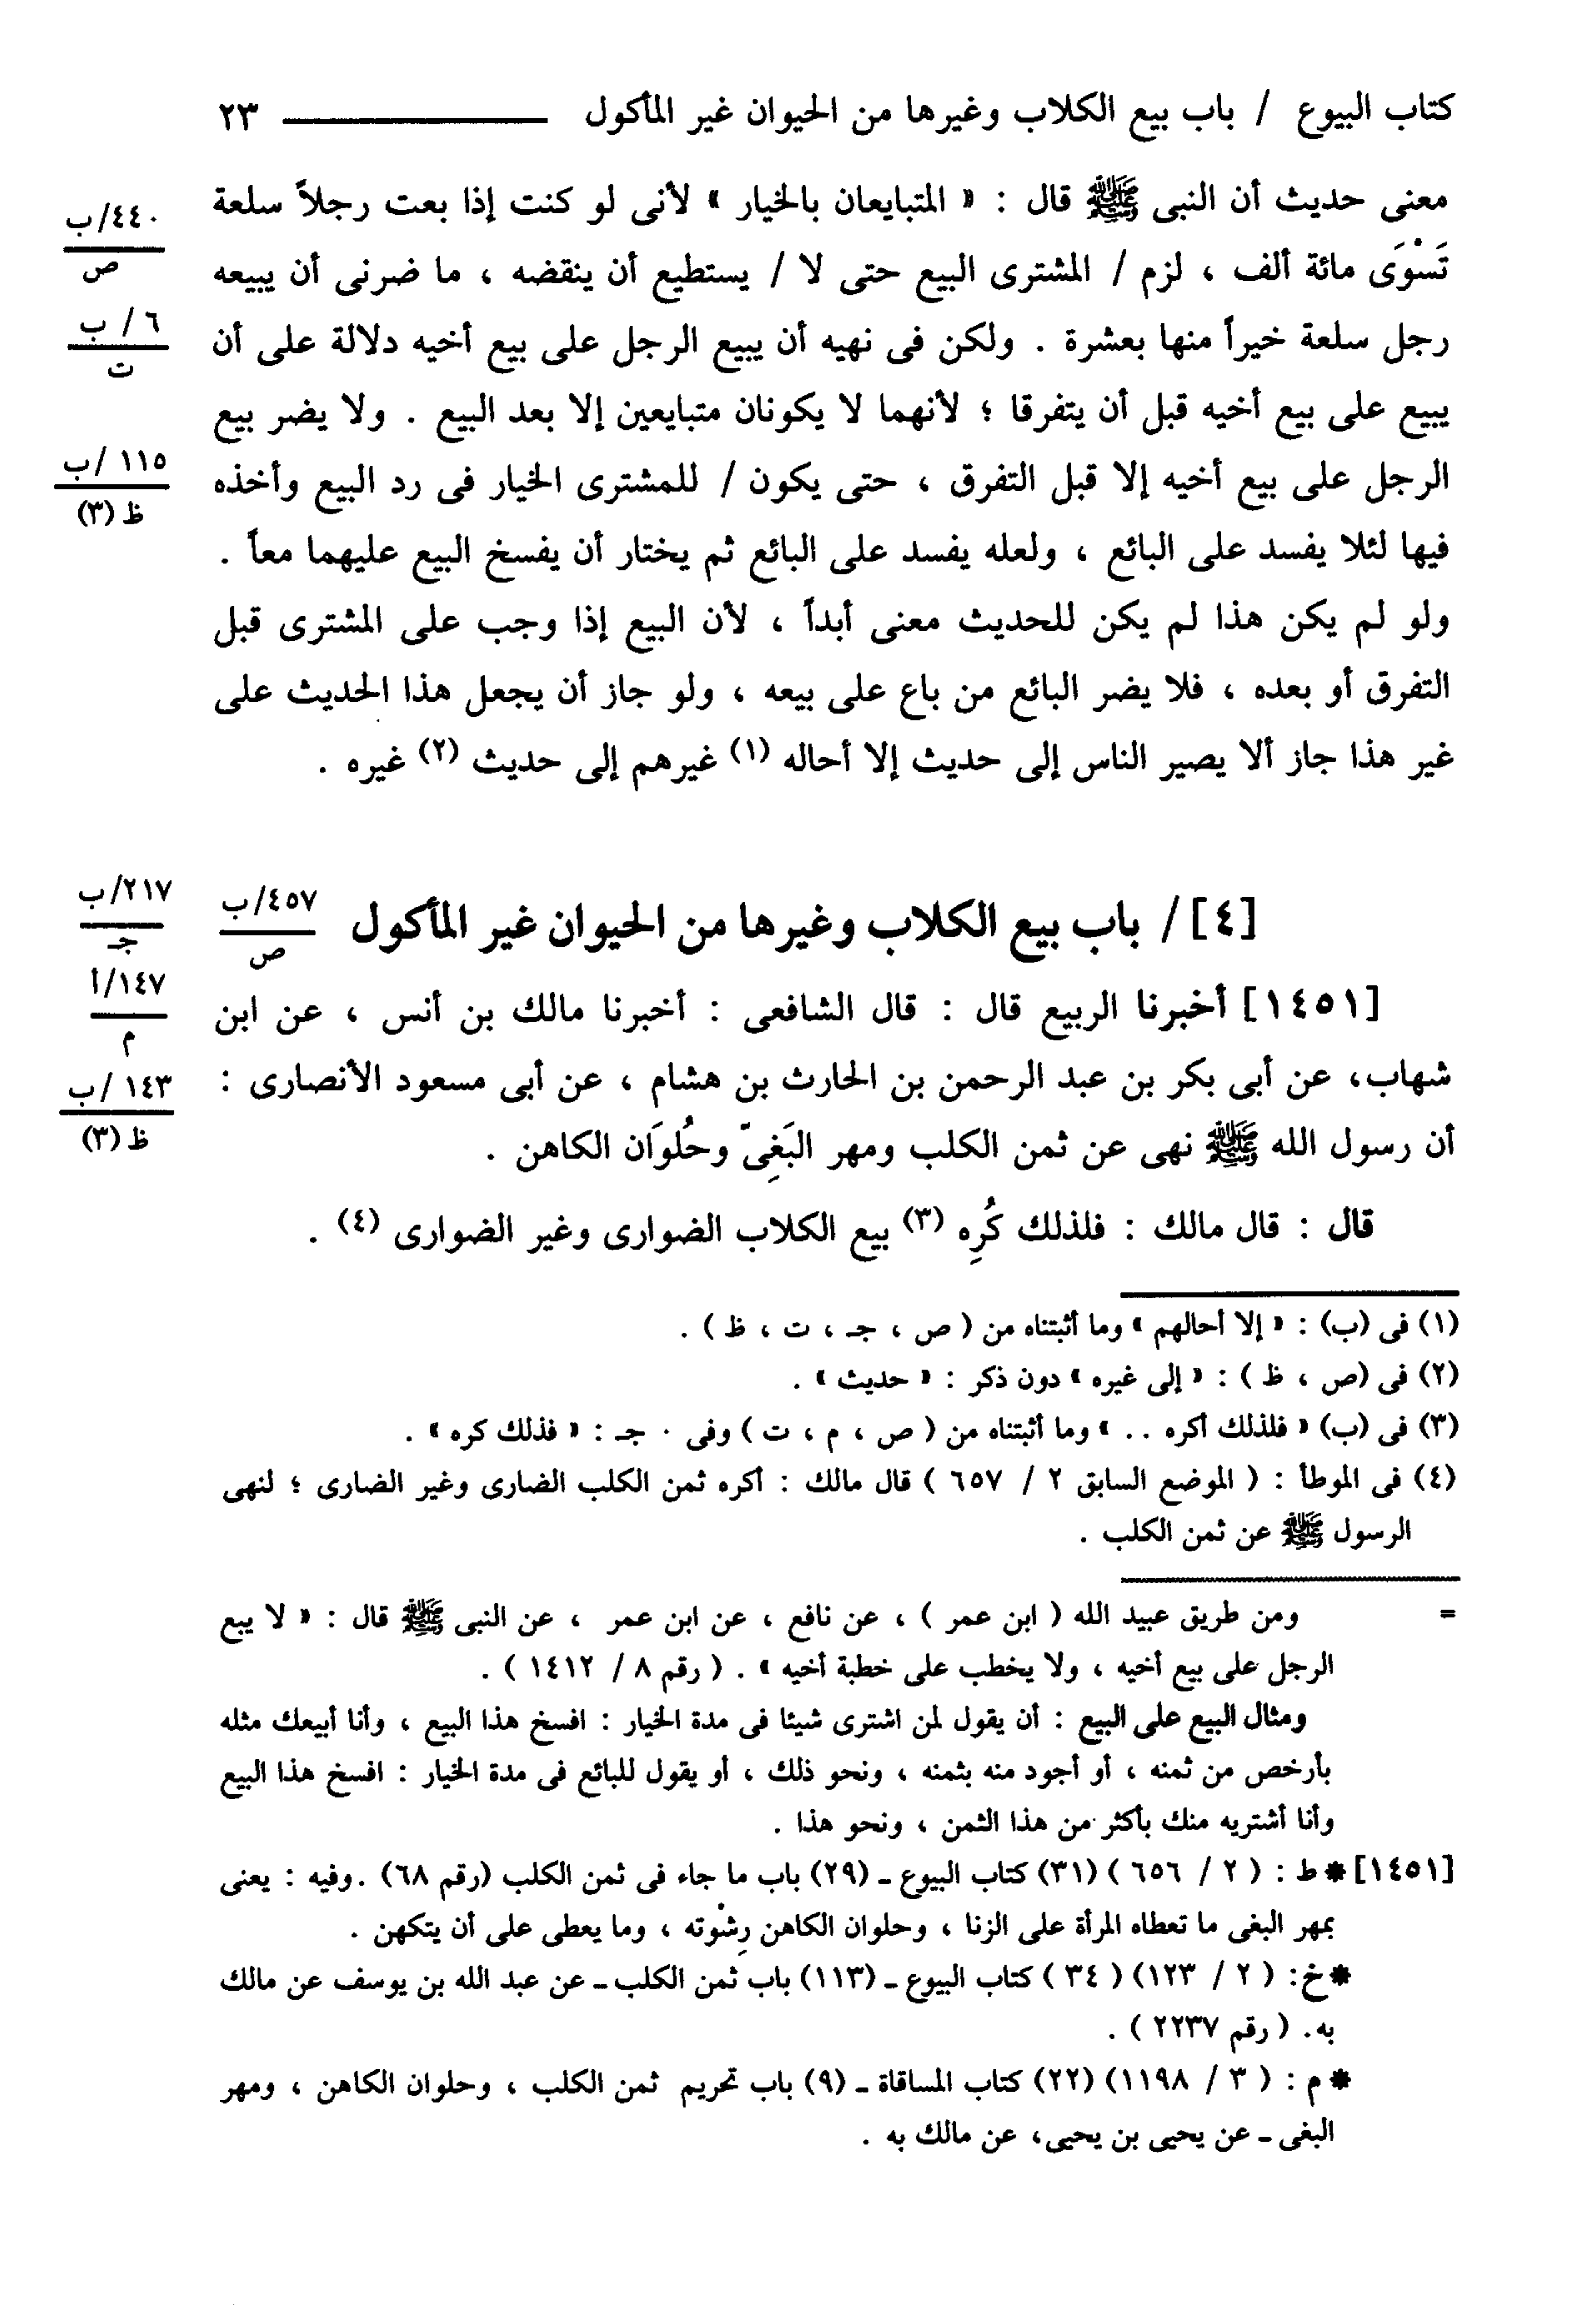 كتاب البيوع / باب بيع الكلاب وغيرها من الحيوان غير المأكول ٢٣
معنى حديث أن النبى ﷺ قال : « المتبايعان بالخيار » لأنى لو كنت إذا بعت رجلاً سلعة
تَسْوَى مائة ألف ، لزم / المشترى البيع حتى لا / يستطيع أن ينقضه ، ما ضرنى أن يبيعه
رجل سلعة خيراً منها بعشرة . ولكن فى نهيه أن يبيع الرجل على بيع أخيه دلالة على أن
يبيع على بيع أخيه قبل أن يتفرقا ؛ لأنهما لا يكونان متبايعين إلا بعد البيع . ولا يضر بيع
الرجل على بيع أخيه إلا قبل التفرق ، حتى يكون / للمشترى الخيار فى رد البيع وأخذه
فيها لئلا يفسد على البائع ، ولعله يفسد على البائع ثم يختار أن يفسخ البيع عليهما معاً .
ولو لم يكن هذا لم يكن للحديث معنى أبداً ، لأن البيع إذا وجب على المشترى قبل
التفرق أو بعده ، فلا يضر البائع من باع على بيعه ، ولو جاز أن يجعل هذا الحديث على
غير هذا جاز ألا يصير الناس إلى حديث إلا أحاله (١) غيرهم إلى حديث (٢) غيره .
٤٤٠/ب
ص
٦ / ب
ت
١١٥ /ب
ظ (٣)
[٤] / باب بيع الكلاب وغيرها من الحيوان غير المأكول
٤٥٧/ب
ص
٢١٧/ب
جـ
١٤٧/أ
م
١٤٣ /ب
ظ (٣)
[١٤٥١] أخبرنا الربيع قال : قال الشافعى : أخبرنا مالك بن أنس ، عن ابن
شهاب، عن أبى بكر بن عبد الرحمن بن الحارث بن هشام ، عن أبى مسعود الأنصارى :
أن رسول الله ﷺ نهى عن ثمن الكلب ومهر البَغِىّ وحُلوَان الكاهن .
قال : قال مالك : فلذلك كُرِه (٣) بيع الكلاب الضوارى وغير الضوارى (٤) .
(١) فى (ب) : « إلا أحالهم » وما أثبتناه من ( ص ، جـ ، ت ، ظ ) .
(٢) فى (ص ، ظ ) : « إلى غيره » دون ذكر : « حديث » .
(٣) فى (ب) « فلذلك أكره . . » وما أثبتناه من ( ص ، م ، ت ) وفى . جـ : « فذلك كره » .
(٤) فى الموطأ : ( الموضع السابق ٢ / ٦٥٧ ) قال مالك : أكره ثمن الكلب الضارى وغير الضارى ؛ لنهى
الرسول ﷺ عن ثمن الكلب .
= ومن طريق عبيد الله ( ابن عمر ) ، عن نافع ، عن ابن عمر ، عن النبى ﷺ قال : « لا يبع
الرجل على بيع أخيه ، ولا يخطب على خطبة أخيه » . ( رقم ٨ / ١٤١٢ ) .
ومثال البيع على البيع : أن يقول لمن اشترى شيئا فى مدة الخيار : افسخ هذا البيع ، وأنا أبيعك مثله
بأرخص من ثمنه ، أو أجود منه بثمنه ، ونحو ذلك ، أو يقول للبائع فى مدة الخيار : افسخ هذا البيع
وأنا أشتريه منك بأكثر من هذا الثمن ، ونحو هذا .
[١٤٥١] * ط : ( ٢ / ٦٥٦ ) (٣١) كتاب البيوع ـ (٢٩) باب ما جاء فى ثمن الكلب (رقم ٦٨) .وفيه : يعنى
بمهر البغى ما تعطاه المرأة على الزنا ، وحلوان الكاهن رِشْوته ، وما يعطى على أن يتكهن .
* خ: ( ٢ / ١٢٣) ( ٣٤ ) كتاب البيوع ـ (١١٣) باب ثمن الكلب ـ عن عبد الله بن يوسف عن مالك
به. ( رقم ٢٢٣٧ ) .
* م : ( ٣ / ١١٩٨) (٢٢) كتاب المساقاة ـ (٩) باب تحريم ثمن الكلب ، وحلوان الكاهن ، ومهر
البغى ـ عن يحيى بن يحيى، عن مالك به .